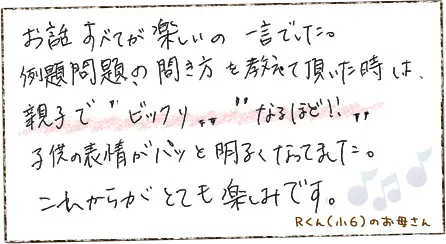 お話すべてが楽しいの一言でした。
例題問題の聞き方を教えて頂いた時は、
親子で"ビックリ"" なるほど!!"
子供の表情がパッと明るくなってました。
これからがとても楽しみです。
Rくん(小6)のお母さん